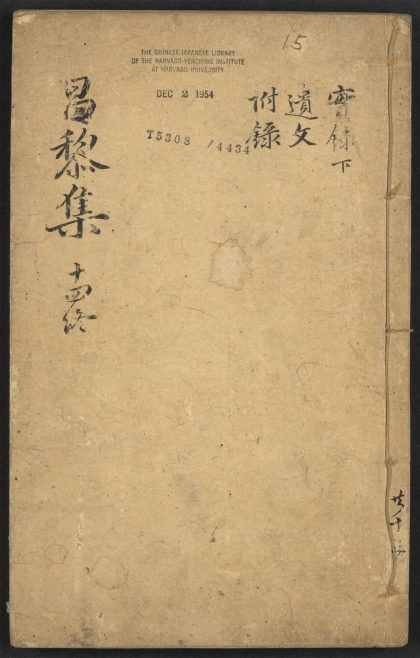 15
THE CHINESE-JAPANESE LIBRARY
OF THE HARVARD-YENCHING INSTITUTE
AT HARVARD UNIVERSITY
DEC 2 1954
T5308 /4434
實錄下
遺文
附錄
昌黎集 十四終
共十